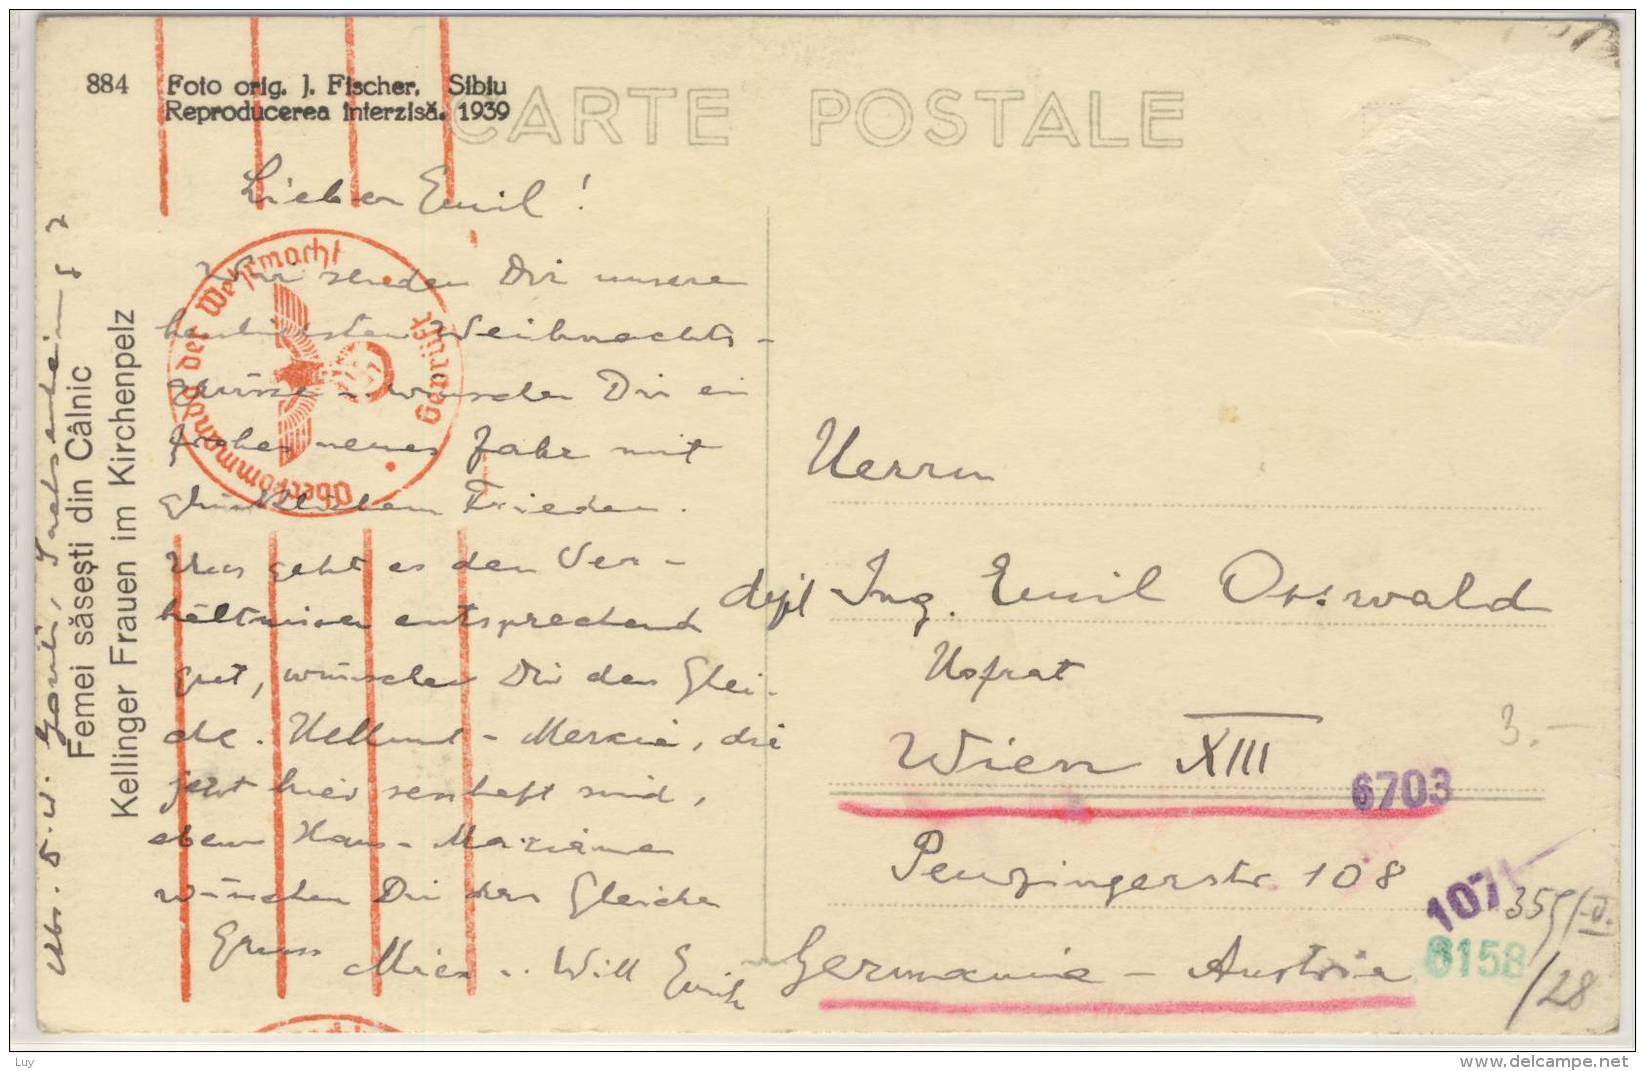 884 Foto orig. J. Fischer, Sibiu
Reproducerea interzisă. 1939
CARTE POSTALE
Lieber Emil!
Wir senden Dir unsere
herzlichsten Weihnachts-
grüsse u. wünschen Dir ein
frohes neues Jahr mit
glücklichem Frieden.
Uns geht es den Ver-
hältnissen entsprechend
gut, wünschen Dir das Glei-
che. Hellmut - , die
jetzt hier sesshaft sind,
eben Hans - Marianne
wünschen Dir das Gleiche
Gruss Mien u. Willi Erich
Oberkommando der Wehrmacht
Geprüft
Femei săsești din Câlnic
Kellinger Frauen im Kirchenpelz
Abs.
Herrn
dipl Ing. Emil Osswald
Hofrat
Wien XIII
6703
Penzingerstr. 108
107
Germania - Austria
8158
/28
3.-
Luy
www.delcampe.net